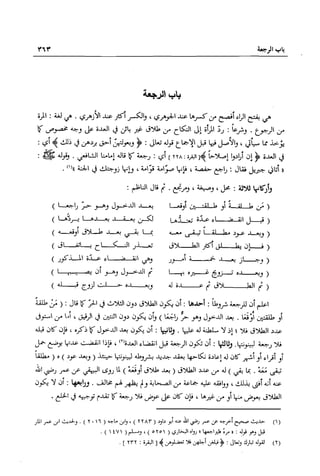 باب الرجعة ٣٦٣
باب الرجعة
هي بفتح الراء أفصح من كسرها عند الجوهري ، والكسر أكثر عند الأزهري . هي لغة : المرة
من الرجوع . وشرعاً : رد المرأة إلى النكاح من طلاق غير بائن في العدة على وجه مخصوص كما
يؤخذ مما سيأتي ، والأصل فيها قبل الإجماع قوله تعالى : ﴿ وبعولتهن أحق بردهن في ذلك ﴾ أي :
في العدة ﴿ إن أرادوا إصلاحاً ﴾ [ البقرة : ٢٢٨ ] أي : رجعة كما قاله إمامنا الشافعي . وقوله ﷺ :
« أتاني جبريل فقال : راجع حفصة ، فإنها صوامة قوامة ، وإنها زوجتك في الجنة » (١) .
وأركانها ثلاثة : محل ، وصيغة ، ومرتجع . ثم قال الناظم :
( من طلقة أو طلقتين أوقعا بعد الدخول وهو حر راجعا )
( قبل انقضاء عدة تعتدها لكن بعقد بعدها يردها )
( وبعد عود مطلقاً تبقى معه بما بقي بعد طلاق أوقعه )
( فإن يطلق أكثر الطلاق تعذر النكاح باتفاق )
( وجاز بعد خمسة أمور وهي انقضاء عدة المذكور )
( وبعده تزويج غيره بها ثم الدخول وهو أن يصيبها )
( ثم الطلاق ثم عدة له وبعده حلت لزوج قبله )
اعلم أن للرجعة شروطاً : أحدها : أن يكون الطلاق دون الثلاث في الحر كما قال : ( من طلقة
أو طلقتين أوقعا . بعد الدخول وهو حر راجعا ) وأن يكون دون الثنتين في الرقيق ، أما من استوفى
عدد الطلاق فلا ؛ إذ لا سلطنة له عليها . وثانيها : أن يكون بعد الدخول كما ذكره ، فإن كان قبله
فلا رجعة لبينونتها. وثالثها : أن تكون الرجعة قبل انقضاء العدة (٢) ، فإذا انقضت عدتها بوضع حمل
أو أقراء أو أشهر كان له إعادة نكاحها بعقد جديد بشروطه لبينونتها حينئذ ( وبعد عود ) ه ( مطلقاً
تبقى معه . بما بقي ) له من عدد الطلاق ( بعد طلاق أوقعه ) لما روى البيهقي عن عمر رضي الله
عنه أنه أفتى بذلك ، ووافقه عليه جماعة من الصحابة ولم يظهر لهم مخالف . ورابعها : أن لا يكون
الطلاق بعوض منها أو من غيرها ، فإن كان على عوض فلا رجعة كما تقدم توجيهه في الخلع .
(١) حديث صحيح أخرجه عن عمر رضي الله عنه أبو داود ( ٢٢٨٣ ) ، وابن ماجه ( ٢٠١٦ )
(٢) لقوله تبارك وتعالى : ﴿ فبلغن أجلهن فلا تعضلوهن ﴾ [ البقرة : ٢٣٢ ] .